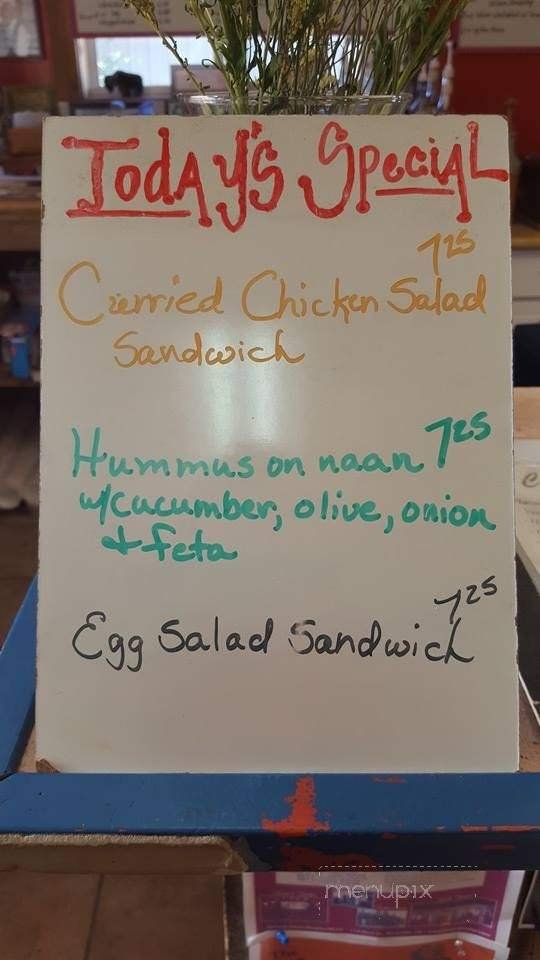 Today's Special
7.25
Curried Chicken Salad
Sandwich
Hummus on naan 7.25
w/cucumber, olive, onion
+ feta
7.25
Egg Salad Sandwich
menupix